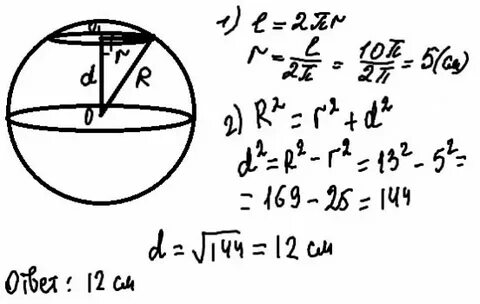 O₁
r
d
R
O
1) l = 2πr
r = l/2π = 10π/2π = 5(см)
2) R² = r² + d²
d² = R² - r² = 13² - 5² =
= 169 - 25 = 144
d = √144 = 12 см
Ответ: 12 см